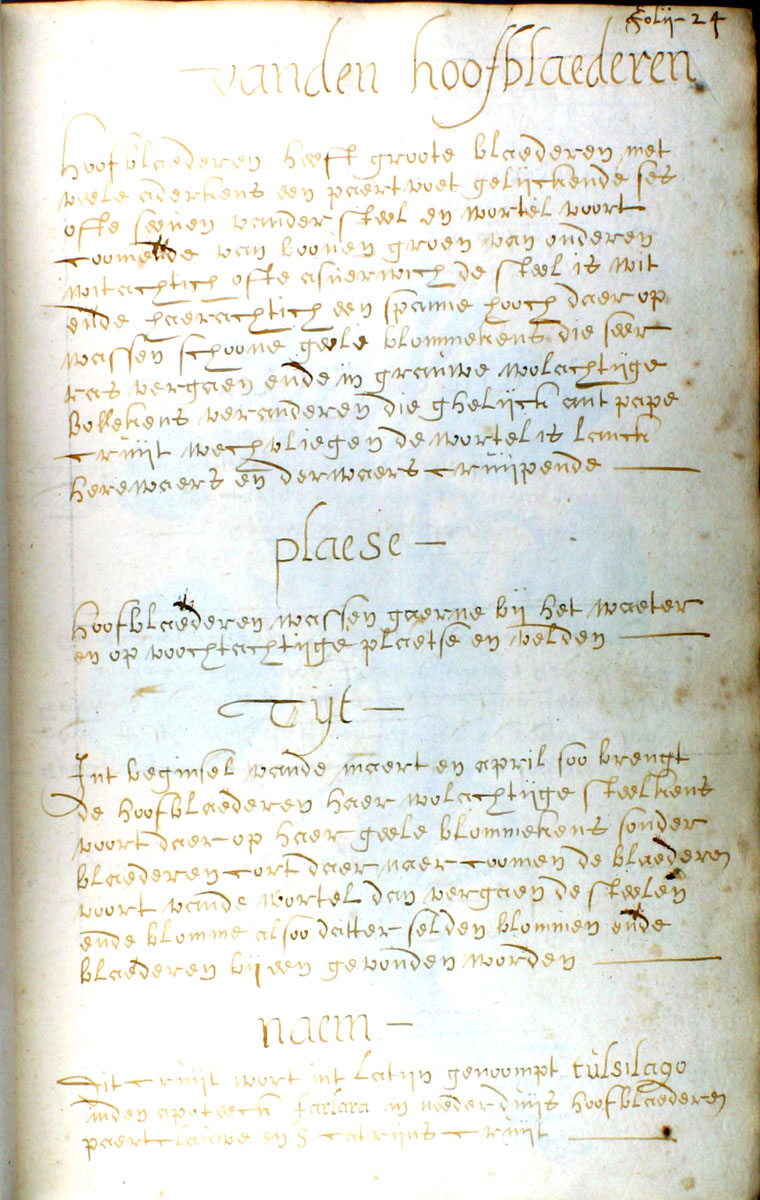 Folij - 24
vanden hoofblaederen
Hoofblaederen heeft groote blaederen met
veele aderkens een paert voet gelijckende ses
ofte seeven vander steel en wortel voort
coomende van booven groen van onderen
witachtich ofte asverwich de steel is wit
ende haerachtich een spanne hooch daer op
wassen schoone geele blommekens die seer
ras vergaen ende in grauwe wolachtijge
bollekens veranderen die ghelijck ant pape
cruijt wech vliegen de wortel is lanck
herewaers en derwaers cruijpende —
plaese —
hoofblaederen wassen gaerne bij het waeter
en op voochtachtijge plaetse en velden —
Tijt —
Int beginsel vande maert en april soo brengt
de hoofblaederen haer wolachtijge steelkens
voort daer op haer geele blommekens sonder
blaederen cort daer naer coomen de blaederen
voort vande wortel dan vergaen de steelen
ende blomme alsoo datter selden blommen ende
blaederen bij een gevonden worden —
naem —
Dit cruijt wort int Latijn genoompt tulsilago
inden apoteeck farfara in neederduijs hoofblaederen
paertclauwe en S catrijns cruijt —